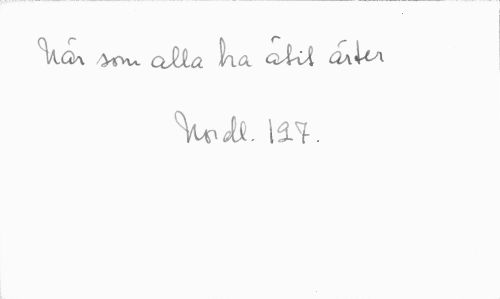 När som alla ha ätit ärter
Nordl. 127.